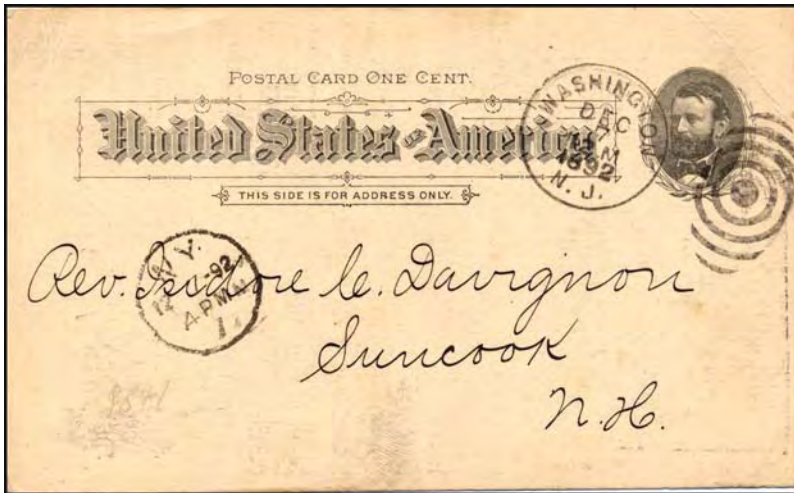 POSTAL CARD ONE CENT.
United States of America
THIS SIDE IS FOR ADDRESS ONLY.
WASHINGTON
DEC
7
M
1892
N. J.
N. Y.
-92
PM
1
Rev. Isidore C. Davignon
Suncook
N. H.